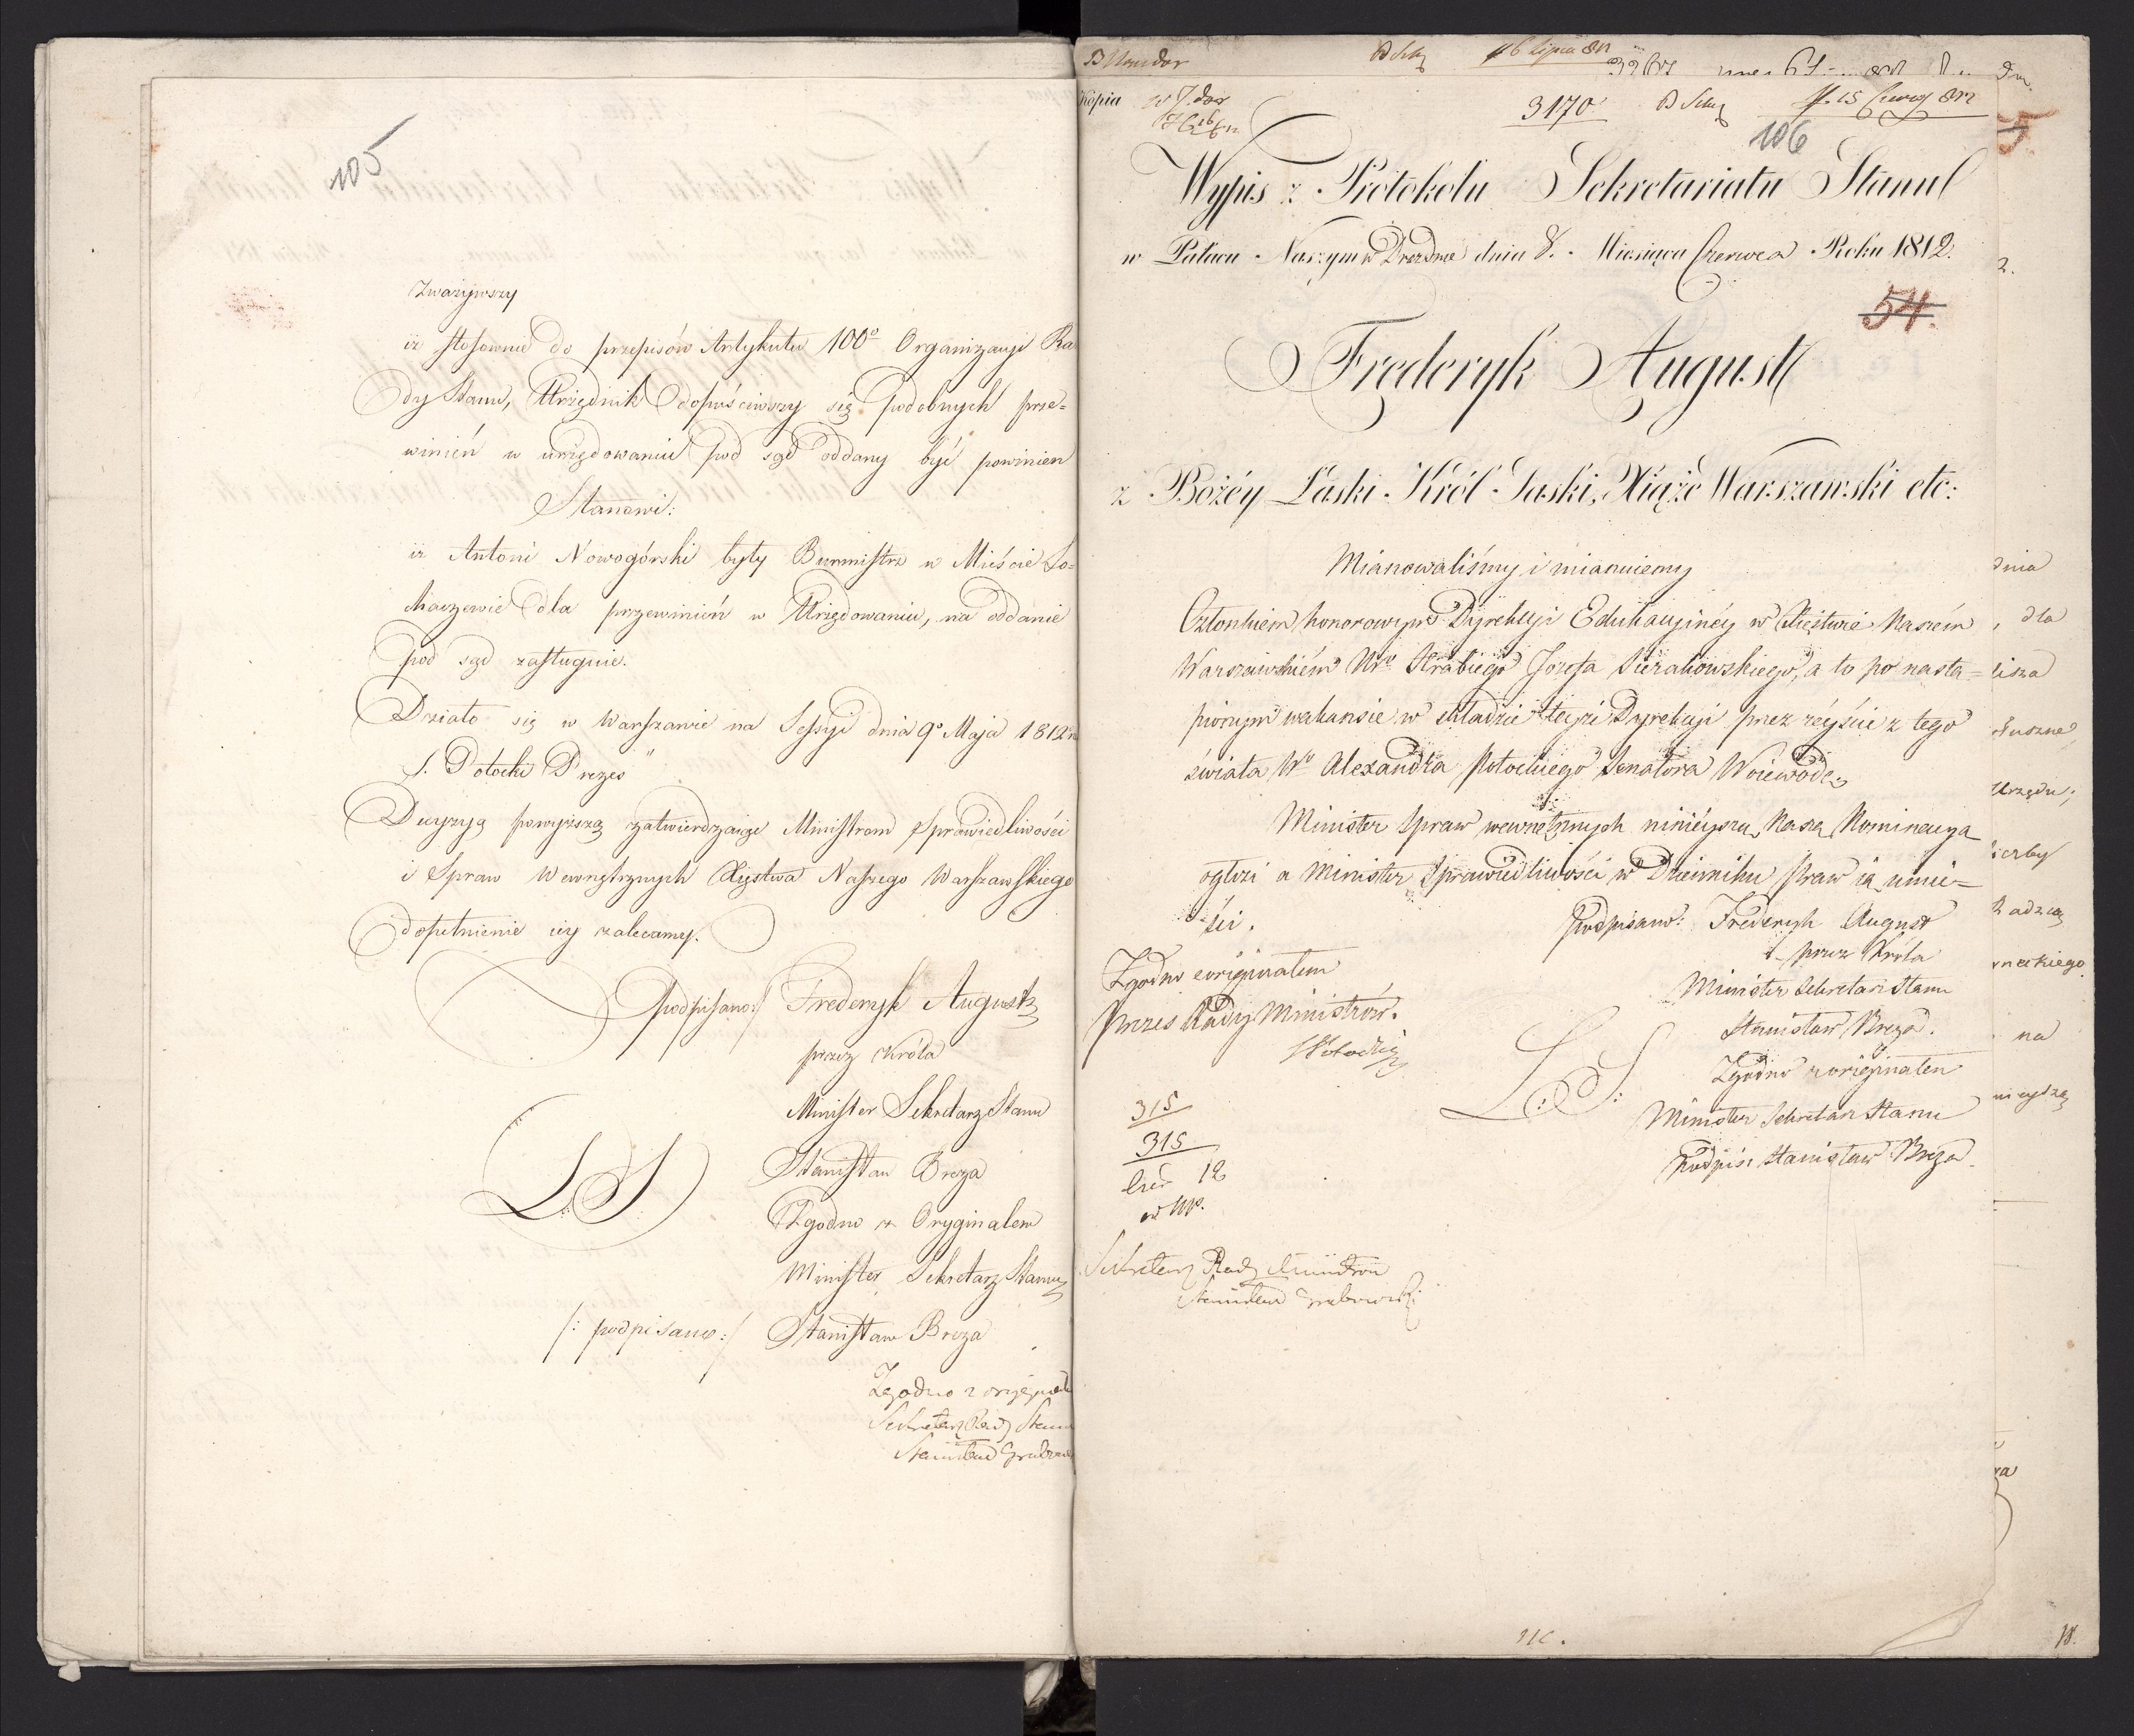 105
Zważywszy
iż stosownie do przepisów Artykułu 100º Organizacyi Ra
dy Stanu, Urzędnik dopuściwszy się podobnych prze=
winień w urzędowaniu pod sąd oddany być powinien
Stanowi:
iż Antoni Nowogórski były Burmistrz w Mieście So=
chaczewie dla przewinień w Urzędowaniu, na oddanie
pod sąd zasługuie.
Działo się w Warszawie na Sessyi dnia 9º Maja 1812
S. Potocki Prezes
Decyzyą powyższą zatwierdzaiąc Ministrom Sprawiedliwości
i Spraw Wewnętrznych Xięstwa Naszego Warszawskiego
dopełnienie iey zalecamy.
podpisano:/ Frederyk August
przez Króla
Minister Sekretarz Stanu
LS Stanisław Breza
Zgodno z Oryginałem
Minister Sekretarz Stanu
/: podpisano :/ Stanisław Breza
Zgodno z oryginał
Sekretarz Rady Stanu
Stanisław
16 Lipca 812
Kopia
3170
15 Czerw 812
106
5.
Wypis z Protokołu Sekretariatu Stanu
w Pałacu Naszym w Dreznie dnia 8. Miesiąca Czerwca Roku 1812.
54.
Frederyk August
z Bożéy Łaski Król Saski, Xiążę Warszawski etc:
Mianowaliśmy i mianuiemy
Członkiem honorowym Dyrekcyi Edukacyinéy w Xięstwie Naszém
Warszawskiém Ur. Hrabiego Józefa Sierakowskiego, a to po nastą=
pionym wakansie w składzie teyże Dyrekcyi przez zeyście z tego
świata Wo Alexandra Potockiego Senatora Woiewodę
Minister Spraw wewnętrznych ninieyszą Naszą Nominacyą
ogłosi a Minister Sprawiedliwości w Dzienniku Praw ią umie=
ści.
Podpisano: Frederyk August
przez Króla
Minister Sekretarz Stanu
Stanisław Breza.
L: S:
Zgodno z originałem
Minister Sekretarz Stanu
Podpis: Stanisław Breza
Zgodno z originałem
Prezes Rady Ministrów.
S Potocki
315
315
12
Sekretarz Rady Ministrów
Stanisław Grabowski
dnia
, dla
na
18.